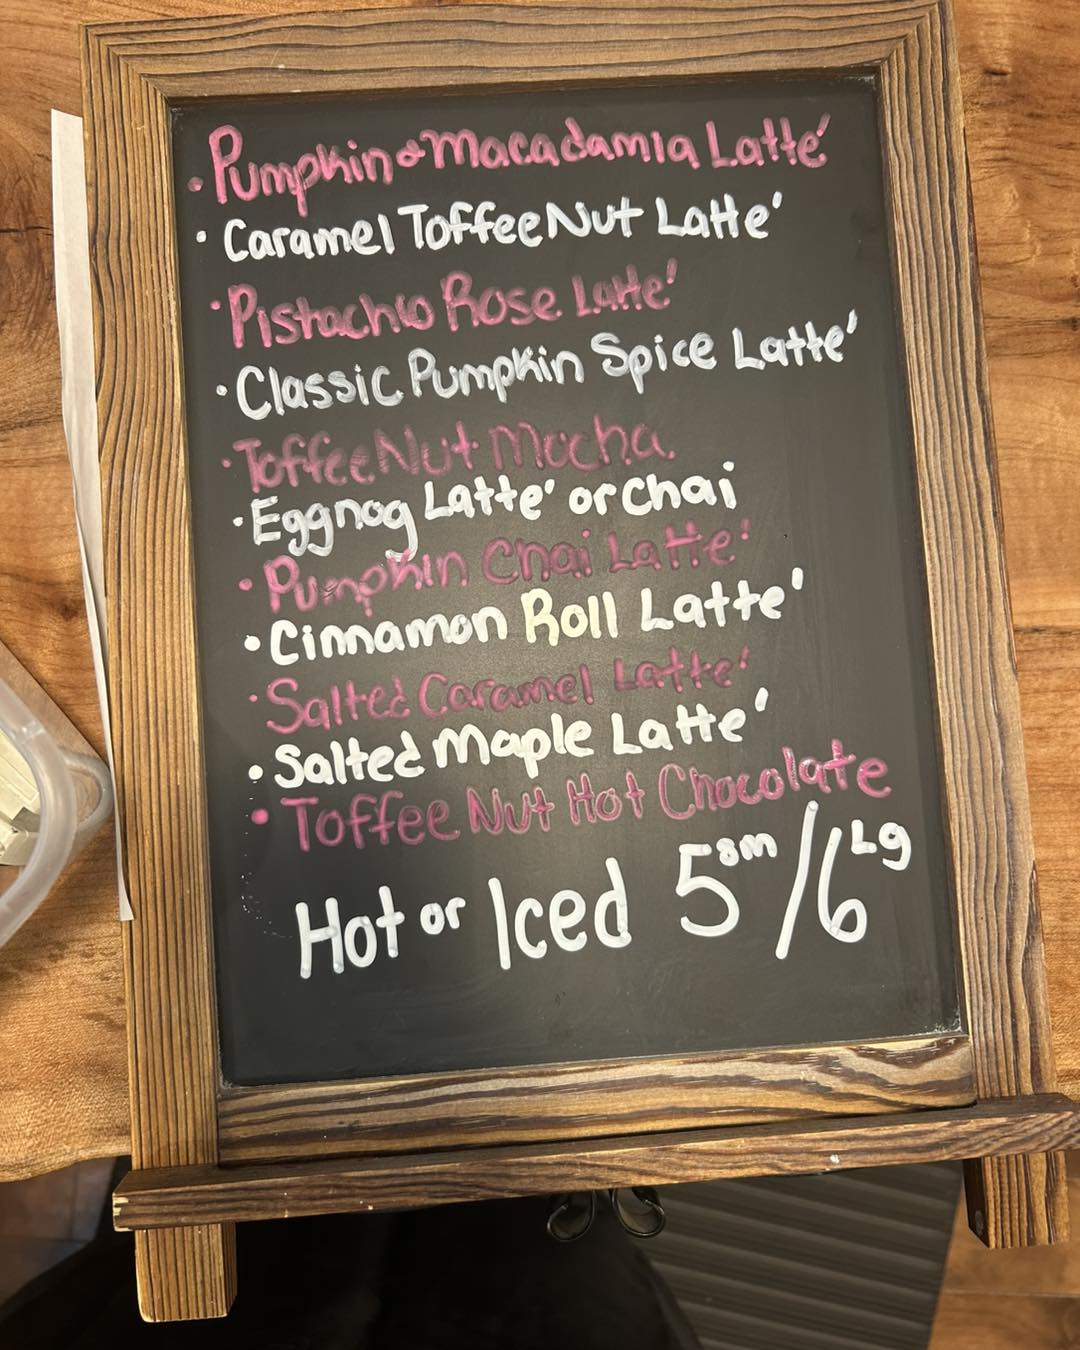 · Pumpkin & Macadamia Latté
· Caramel Toffee Nut Latte'
· Pistachio Rose Latte'
· Classic Pumpkin Spice Latte'
· Toffee Nut Mocha
· Eggnog Latte' or Chai
· Pumpkin Chai Latte'
· Cinnamon Roll Latte'
· Salted Caramel Latte'
· Salted Maple Latte'
· Toffee Nut Hot Chocolate
Hot or Iced 5 sm / 6 Lg